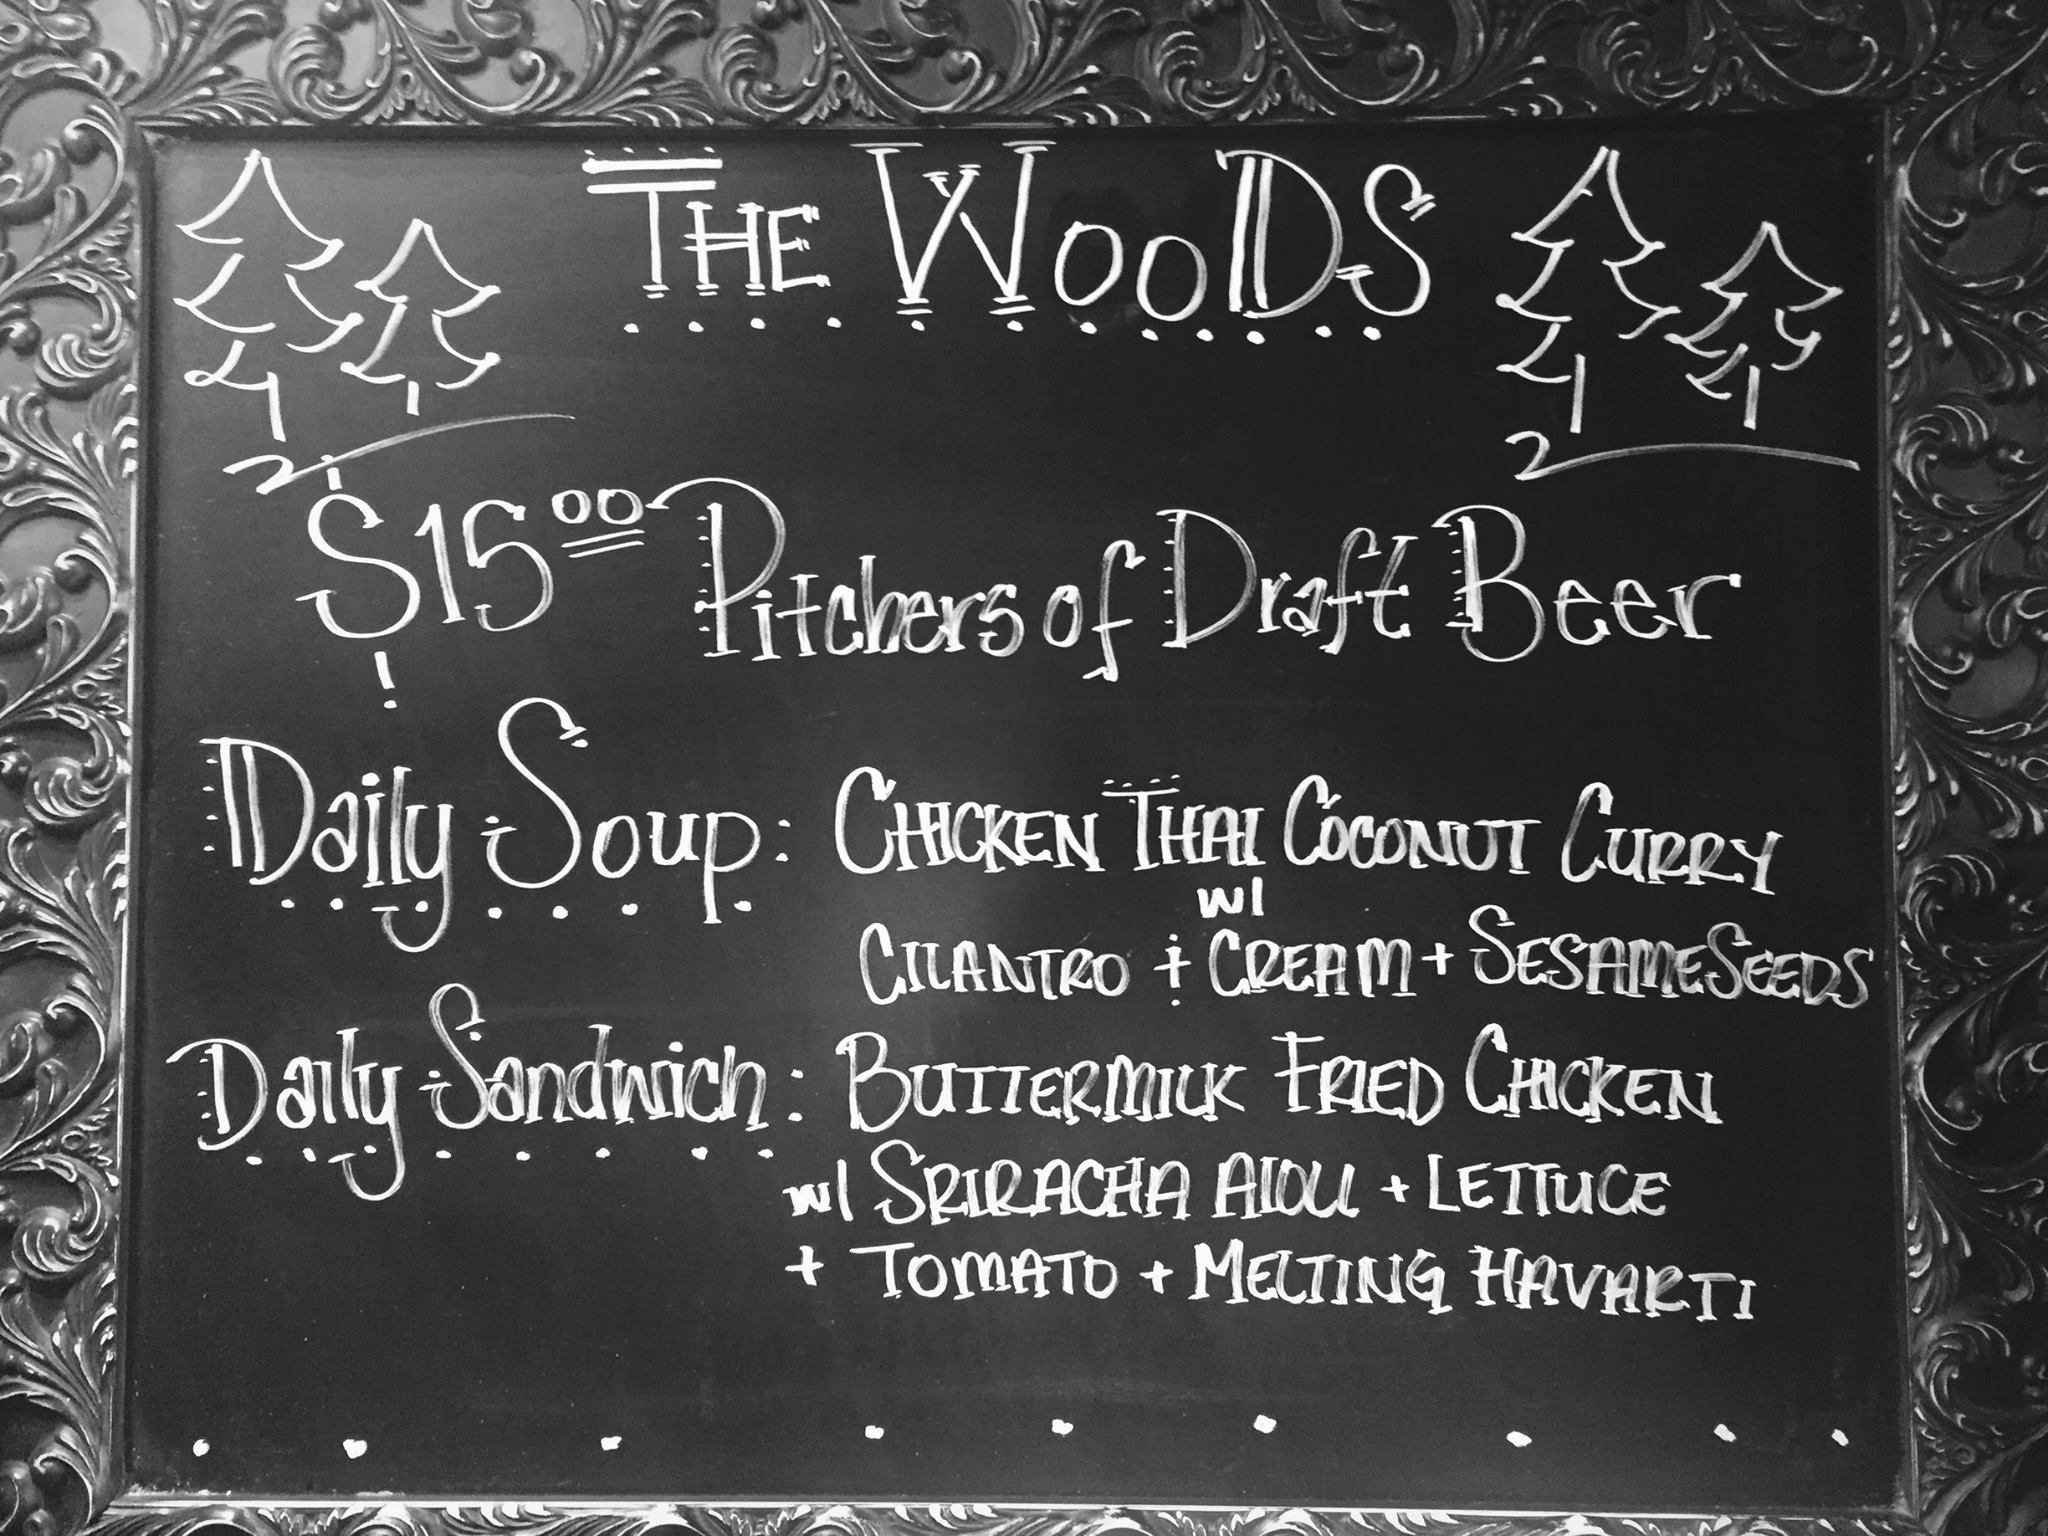 THE WOODS
$15.00 Pitchers of Draft Beer
Daily Soup: CHICKEN THAI COCONUT CURRY
w/
CILANTRO + CREAM + SESAME SEEDS
Daily Sandwich: BUTTERMILK FRIED CHICKEN
w/ SRIRACHA AIOLI + LETTUCE
+ TOMATO + MELTING HAVARTI